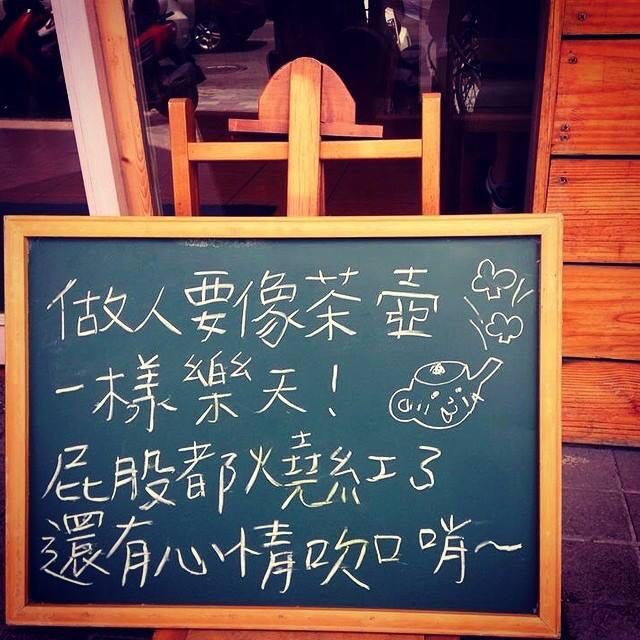 做人要像茶壺
一樣樂天！
屁股都燒紅了
還有心情吹口哨～